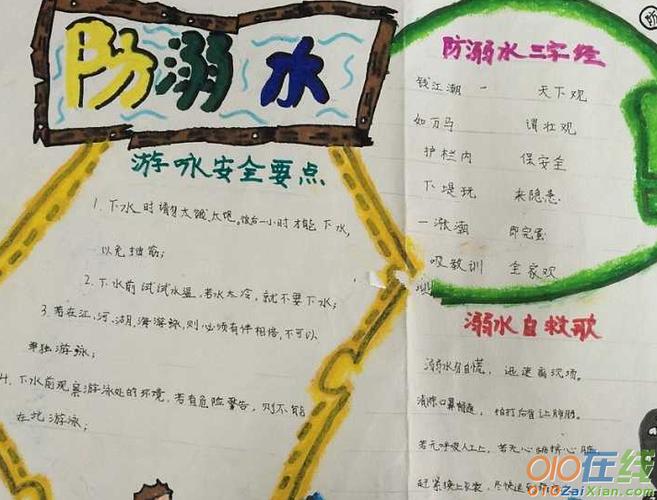 防溺水
游咏安全要点
1. 下水时请勿太饿、太饱。饭后一小时才能下水,
以免抽筋;
2. 下水前试试水温,若水太冷,就不要下水;
3. 若在江、河、湖、海游泳,则必须有伴相陪,不可以
单独游泳;
4. 下水前观察游泳处的环境,若有危险警告,则不能
在此游泳;
防溺水三字经
钱江潮 天下观
如万马 谓壮观
护栏内 保安全
下堤玩 来隐患
一涨潮 即完蛋
吸教训 全家欢
溺水自救歌
溺水自慌, 迅速离现场。
清除口鼻 拍打后背让
若无呼吸人工上, 若无心
赶紧换上衣 尽快送
010在线
010ZaiXian.com